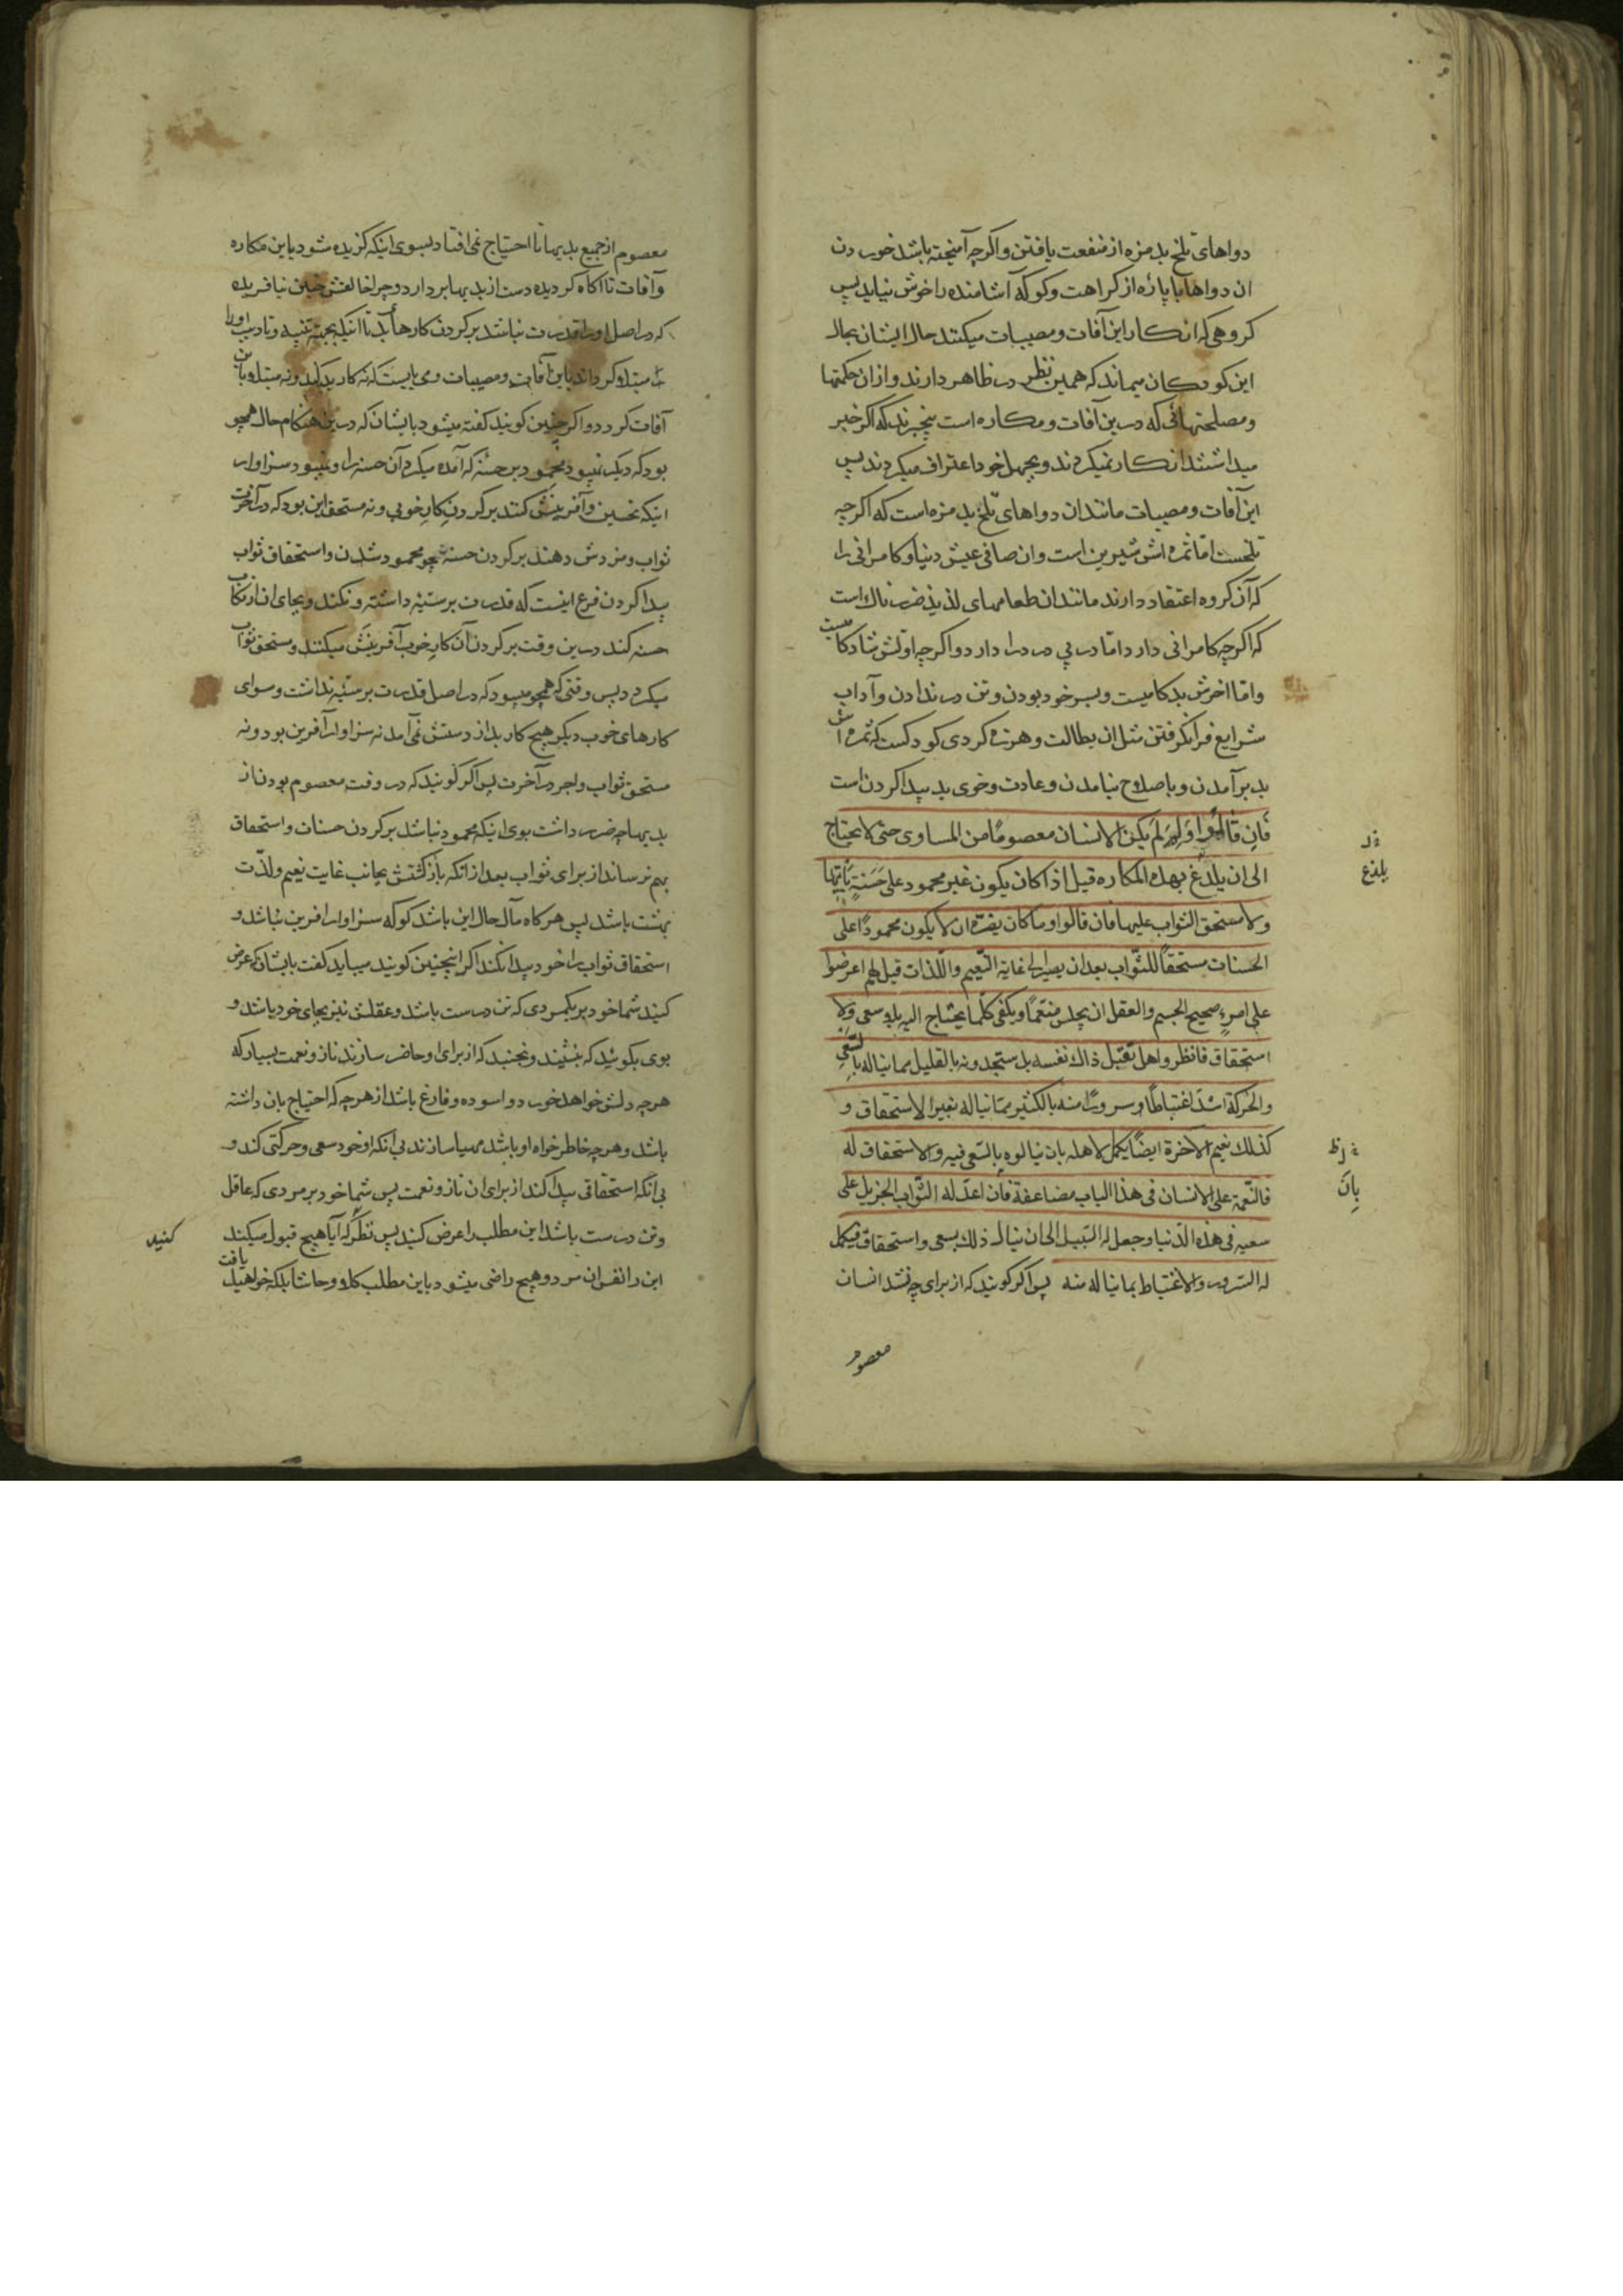 دواهای تلخ بد مزه از منفعت یافتن و اکرچه آمیخته باشد خوردن
ان دواها با پازه از کراهت و کوکه آشامنده را خوش نیاید پس
کروهی که انکار این آفات و مصیبات میکنند حال ایشان بحال
این کودکان میماند که همین نظر در ظاهر دارند و از ان حکمتها
و مصلحتهائی که درین آفات و مکاره است بیخبرند که اکر خبر
میداشتند انکار نمیکردند و بجهل خود اعتراف میکردند پس
این آفات و مصیبات مانند ان دواهای تلخ بد مزه است که اکرچه
تلخست اما ثمره اش شیرین است و ان صافی عیش دنیا و کامرانی را
که آن کروه اعتقاد دارند مانند ان طعامهای لذیذ ضررناک است
که اکرچه کامرانی دارد اما در پی درد را دارد و اکرچه اولش شادکامیست
و اما اخرش بدکامیست و بسر خود بودن و تن در ندادن و آداب
شرایع فرا نکرفتن مثل ان بطالت و هرزه کردی کودکست که ثمره اش
بد برآمدن و باصلاح نیامدن و عادت و خوی بد پیدا کردن است
فان قالوا و لم لم یکن الانسان معصومًا من المساوی حتی لا یحتاج
الی ان یلدغ بهذه المکاره قیل اذا کان یکون غیر محمود علی حَسَنةٍ یأتیها
و لا مستحق الثواب علیها فان قالوا و ما کان یضرّه ان لا یکون محمودًا علی
الحسنات مستحقاً للثّواب بعد ان یصیر الی غایة النّعیم و اللّذات قیل لهم اعرضوا
علی امرءٍ صحیح الجسم و العقل ان یجلس منعّماً و یکفی کلّما یحتاج الیه بلا سعی و لا
استحقاق فانظروا هل تقبل ذلك نفسه بل ستجدونه بالقلیل مما یناله بالسّعی
و الحرکة اشدّ اغتباطًا و سرورًا منه بالکثیر ممّا یناله بغیر الاستحقاق و
کذلك نعیم الاخرة ایضًا یکمل لاهله بان ینالوه بالسّعی فیه و الاستحقاق له
فالنّعمة علی الانسان فی هذا الباب مضاعفة فأن اعدّ له الثّواب الجزیل علی
سعیه فی هذه الدّنیا و جعل له السّبیل الی ان ینال ذلك بسعی و استحقاق فیکمل
له السّرور و الاغتباط بما یناله منه پس اکر کویند که از برای چه نشد انسان
یلذع
بِانَ
معصوم
معصوم از جمیع بدیها تا احتیاج نمی افتاد بسوی اینکه کزیده شود باین مکاره
و آفات تا آکاه کردیده دست از بدیها بردارد و چرا خالقش چنین نیافریده
که در اصل او را قدرت نباشد بر کردن کارها بد تا اینکه بجهة تنبیه و تادیب او را
مبتلا کرداند باین آفات و مصیبات و می بایست که نه کار بد کند و نه مبتلا باین
آفات کردد و اکر چنین کویند کفته میشود بایشان که درین هنکام حال همچو
بود که دیکر نمیبود محمود بر حسنهٔ که آمده میکرد آن حسنه را و نمیبود سزاوار
اینکه تحسین و آفرینش کنند بر کردن کارِ خوبی و نه مستحق این بود که در آخرت
ثواب و مزدش دهند بر کردن حسنهٔ چو محمود شدن و استحقاق ثواب
پیدا کردن فرع اینست که قدرت بر سیّئه داشته و نکند و بجای ان ارتکاب
حسنه کند درین وقت بر کردن آن کار خوب آفرینش میکنند و مستحق ثواب
میکردد پس وقتی که همچو میبود که در اصل قدرت بر سیّئه نداشت و سوای
کارهای خوب دیکر هیچ کار بد از دستش نمی آمد نه سزاوار آفرین بود و نه
مستحق ثواب و اجر در آخرت پس اکر کویند که در وقت معصوم بودن از
بدیها چه ضرر داشت بوی اینکه محمود نباشد بر کردن حسنات و استحقاق
بهم نرساند از برای ثواب بعد از انکه بازکشتش بجانب غایت نعیم و لذّت
بهشت باشد پس هرکاه مآل حال این باشد کو که سزاوار افرین نباشد و
استحقاق ثواب را خود پیدا نکند اکر اینچنین کویند میباید کفت بایشان که عرض
کنید شما خود بر یکمردی که تن درست باشد و عقلش نیز بجای خود باشد و
بوی بکوئید که بنشیند و نجنبد که از برای او حاضر سازند ناز و نعمت بسیار که
هرچه دلش خواهد خورد و اسوده و فارغ باشد از هرچه که احتیاج بان داشته
باشد و هرچه خاطر خواه او باشد مهیا سازند بی آنکه او خود سعی و حرکتی کند و
بی انکه استحقاقی پیدا کند از برای ان ناز و نعمت پس شما خود بر مردی که عاقل
و تن درست باشد این مطلب را عرض کنید پس نظر که آیا هیچ قبول میکند
کنید
این را نفس ان مرد و هیچ راضی میشود باین مطلب کلا و حاشا بلکه خواهید یافت